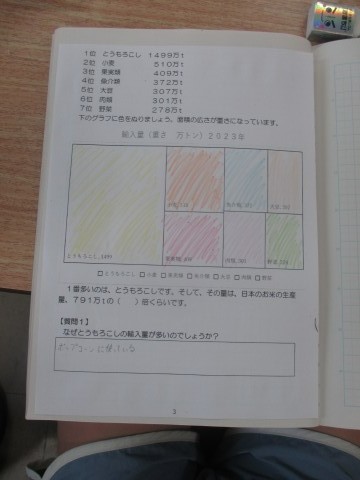 1位 とうもろこし 1499万t
2位 小麦 510万t
3位 果実類 409万t
4位 魚介類 372万t
5位 大豆 307万t
6位 肉類 301万t
7位 野菜 278万t
下のグラフに色をぬりましょう。面積の広さが重さになっています。
輸入量（重さ 万トン）2023年
小麦, 510
魚介類, 372
大豆, 307
とうもろこし, 1499
果実類, 409
肉類, 301
野菜, 278
□とうもろこし □小麦 □果実類 □魚介類 □大豆 □肉類 □野菜
1番多いのは、とうもろこしです。そして、その量は、日本のお米の生産
量、791万tの（ ）倍くらいです。
【質問1】
なぜとうもろこしの輸入量が多いのでしょうか？
ポップコーンに使っている
3